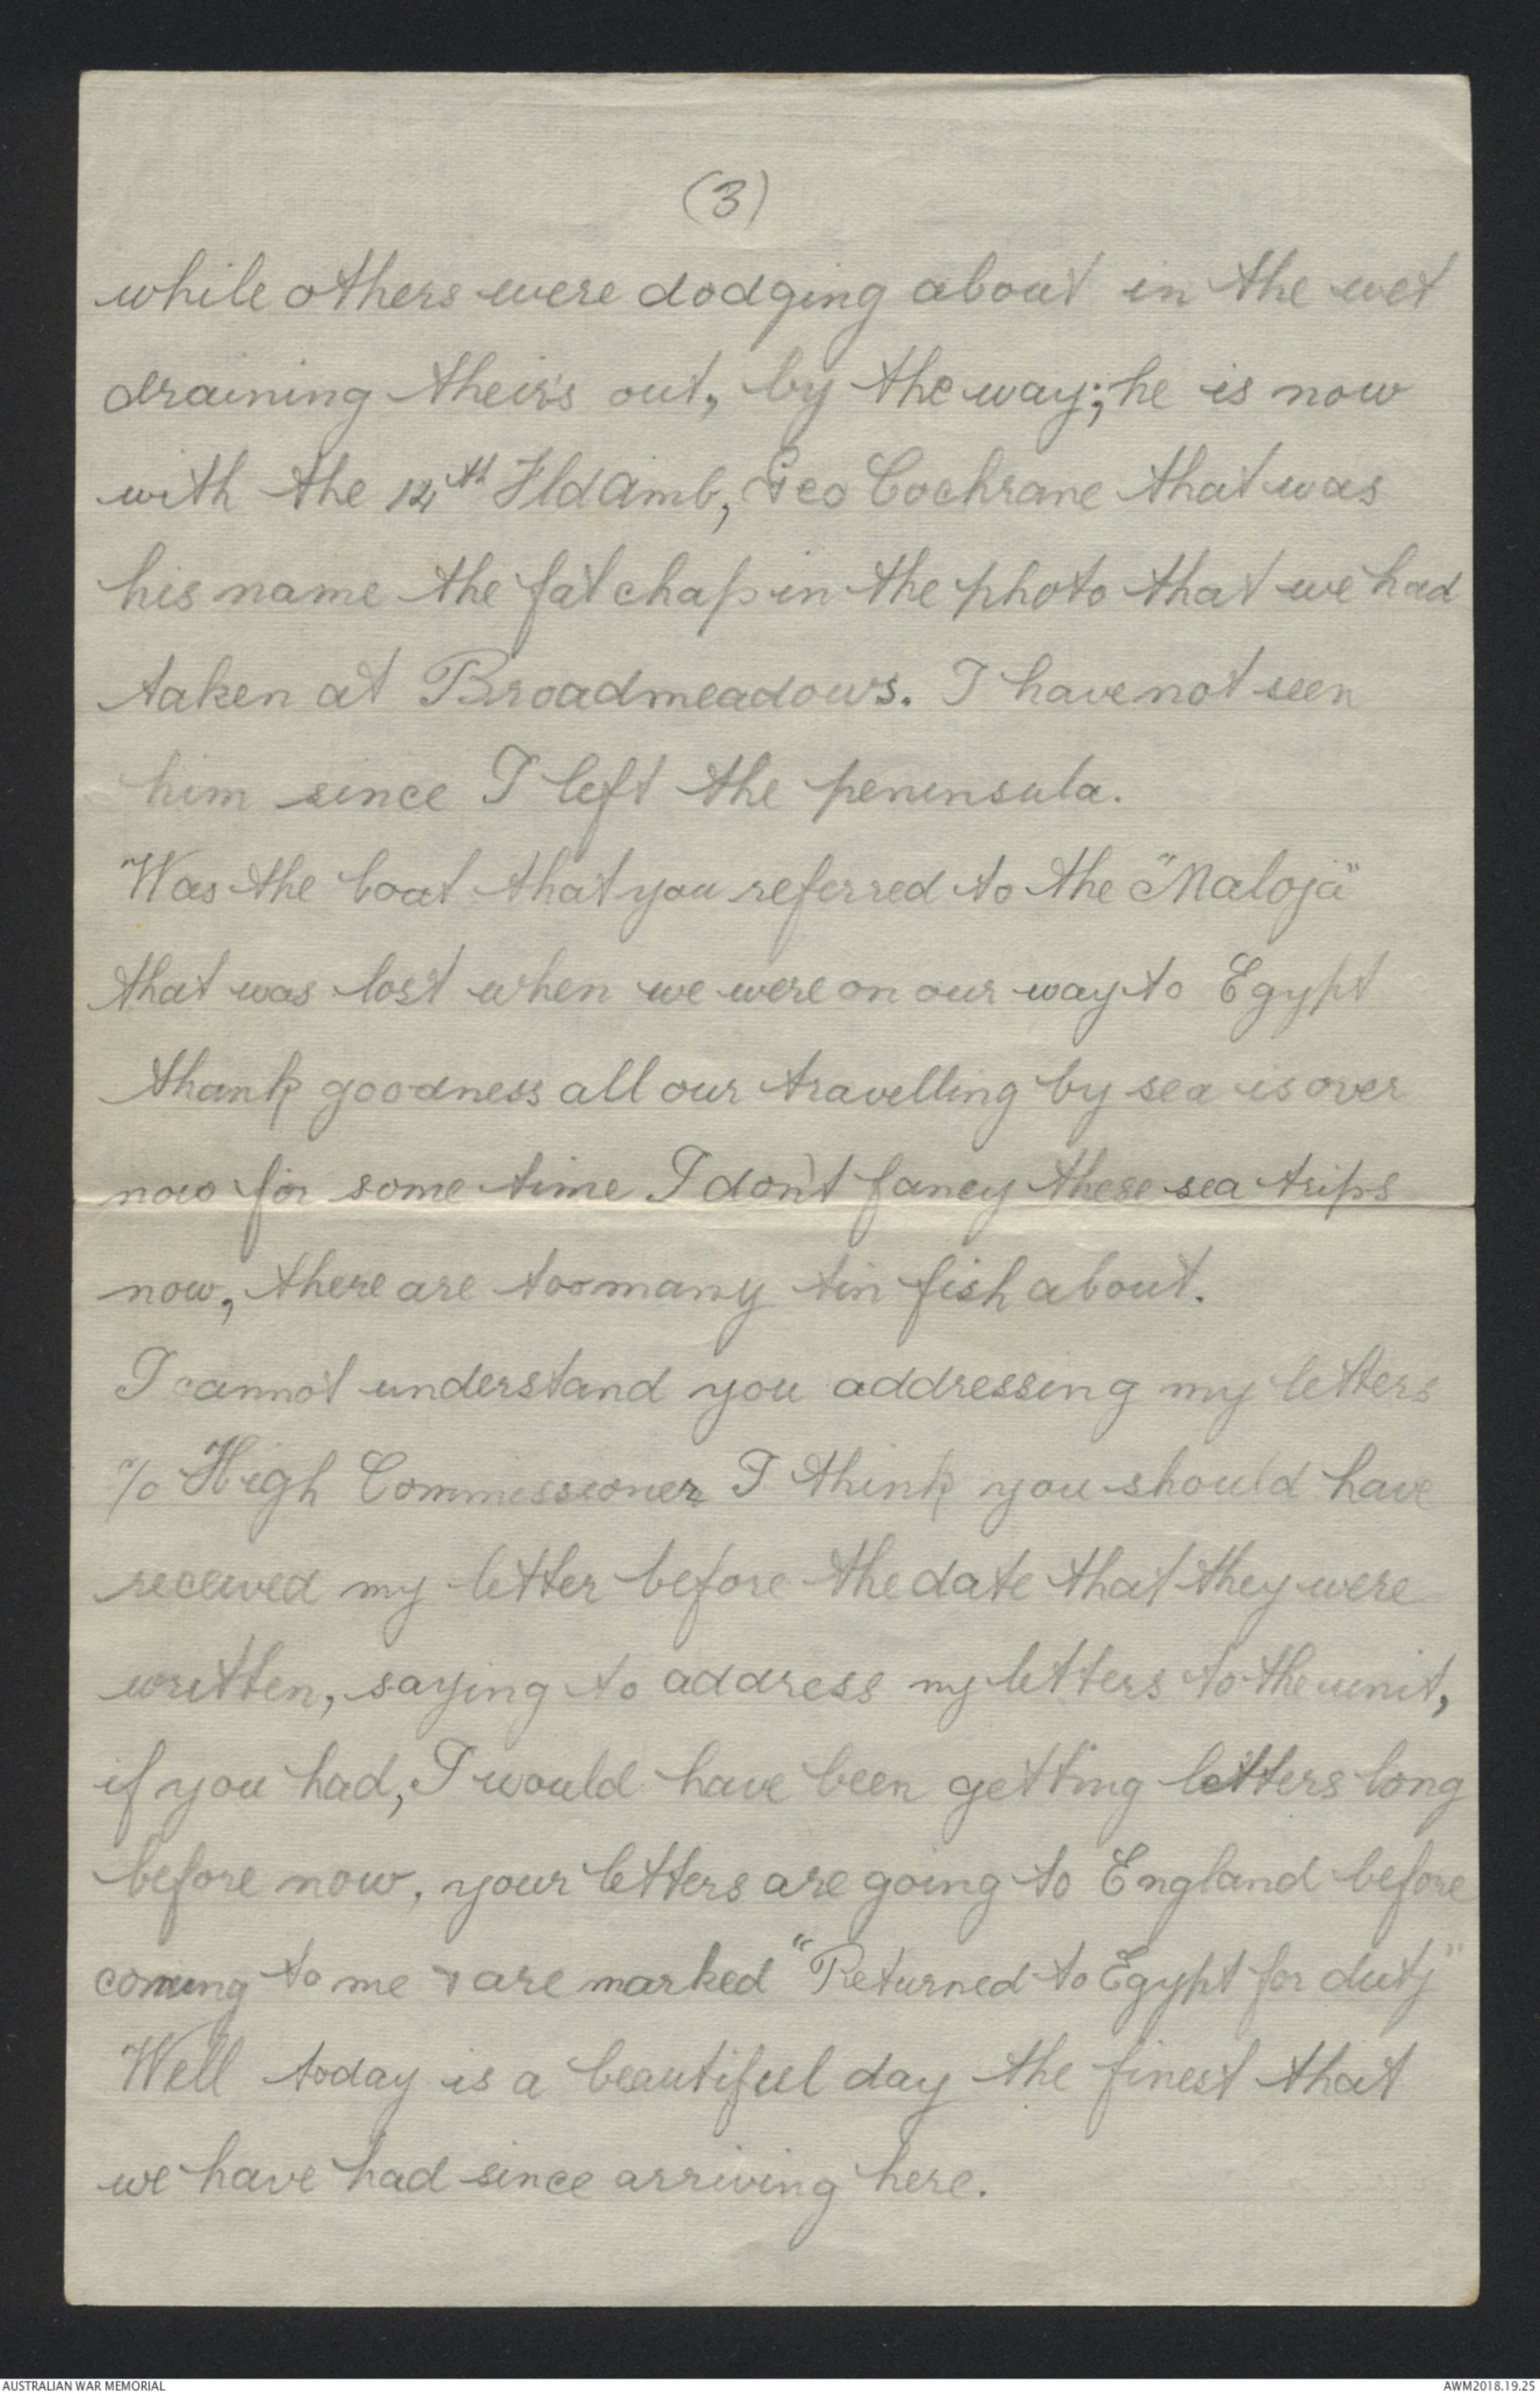 (3)
while others were dodging about in the wet
draining their's out, by the way; he is now
with the 12th Fld Amb, Geo Cochrane that was
his name the fat chap in the photo that we had
taken at Broadmeadows. I have not seen
him since I left the peninsula.
Was the boat that you referred to the "Maloja"
that was lost when we were on our way to Egypt
thank goodness all our travelling by sea is over
now for some time I don't fancy these sea trips
now, there are too many tin fish about.
I cannot understand you addressing my letters
c/o High Commissioner I think you should have
received my letter before the date that they were
written, saying to address my letters to the unit,
if you had, I would have been getting letters long
before now, your letters are going to England before
coming to me & are marked "Returned to Egypt for duty"
Well today is a beautiful day the finest that
we have had since arriving here.
AUSTRALIAN WAR MEMORIAL
AWM2018.19.25